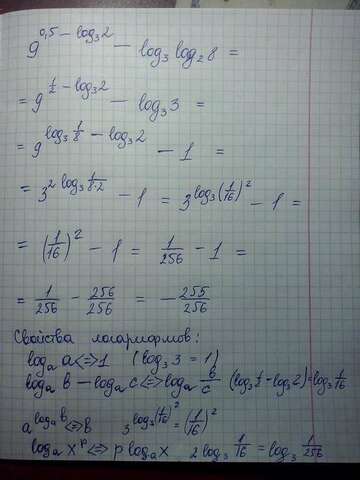 9^{0,5 - log₃2} - log₃ log₂ 8 =
= 9^{1/2 - log₃2} - log₃ 3 =
= 9^{log₃ 1/8 - log₃2} - 1 =
= 3^{2 log₃ 1/(8·2)} - 1 = 3^{log₃ (1/16)²} - 1 =
= (1/16)² - 1 = 1/256 - 1 =
= 1/256 - 256/256 = - 255/256
Свойства логарифмов:
logₐ a <=> 1 (log₃ 3 = 1)
logₐ b - logₐ c <=> logₐ b/c (log₃ 1/8 - log₃ 2) = log₃ 1/16
a^{logₐ b} <=> b 3^{log₃ (1/16)²} = (1/16)²
logₐ xᵖ <=> p logₐ x 2 log₃ 1/16 = log₃ 1/256